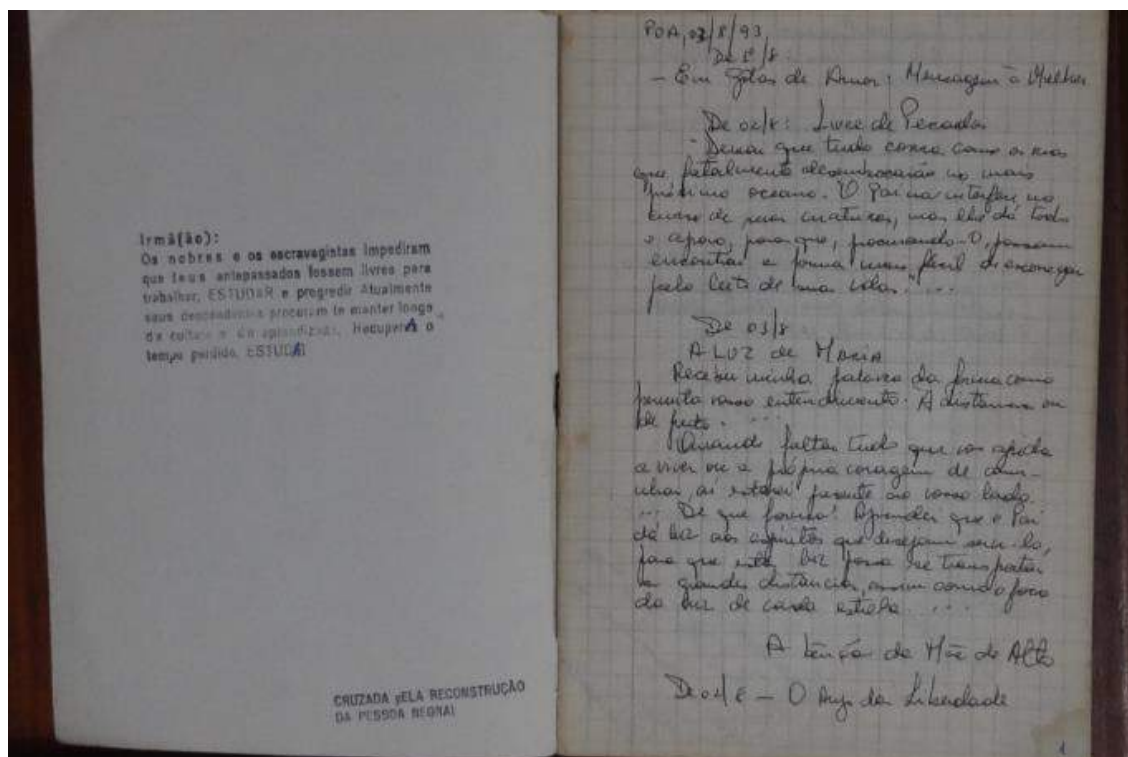 Irmã(ão):
Os nobres e os escravagistas impediram
que teus antepassados fossem livres para
trabalhar, ESTUDAR e progredir Atualmente
seus descendentes procuram te manter longe
da cultura e do aprendizado. RecuperA o
tempo perdido, ESTUDA!
CRUZADA pELA RECONSTRUÇÃO
DA PESSOA NEGRA!
POA, 03/8/93
De 1º/8:
- Em Gotas de Amor: Mensagem à Mulher
De 02/8: Livre de Pecados
"Deixai que tudo corra como os rios
que fatalmente desembocarão no mais
próximo oceano. O Pai não interfere no
curso de suas criaturas, mas lhe dá todo
o apoio, para que, procurando-O, possam
encontrar a forma mais fácil de
pelo leito de suas vidas." ...
De 03/8
A LUZ de MARIA
Recebei minha palavra da forma como
permita vosso entendimento. A distância ou
de perto. ...
Quando faltar tudo que vos ajuda
a viver ou a própria coragem de cami-
nhar, aí estarei presente ao vosso lado.
... De que forma? Aprendei que o Pai
dá luz aos espíritos que desejam servi-lo,
para que esta luz possa se transportar
a grandes distâncias, assim como o foco
da luz de cada estrela. ...
A bênção da Mãe do Alto
De 04/8 - O Anjo da Liberdade
1